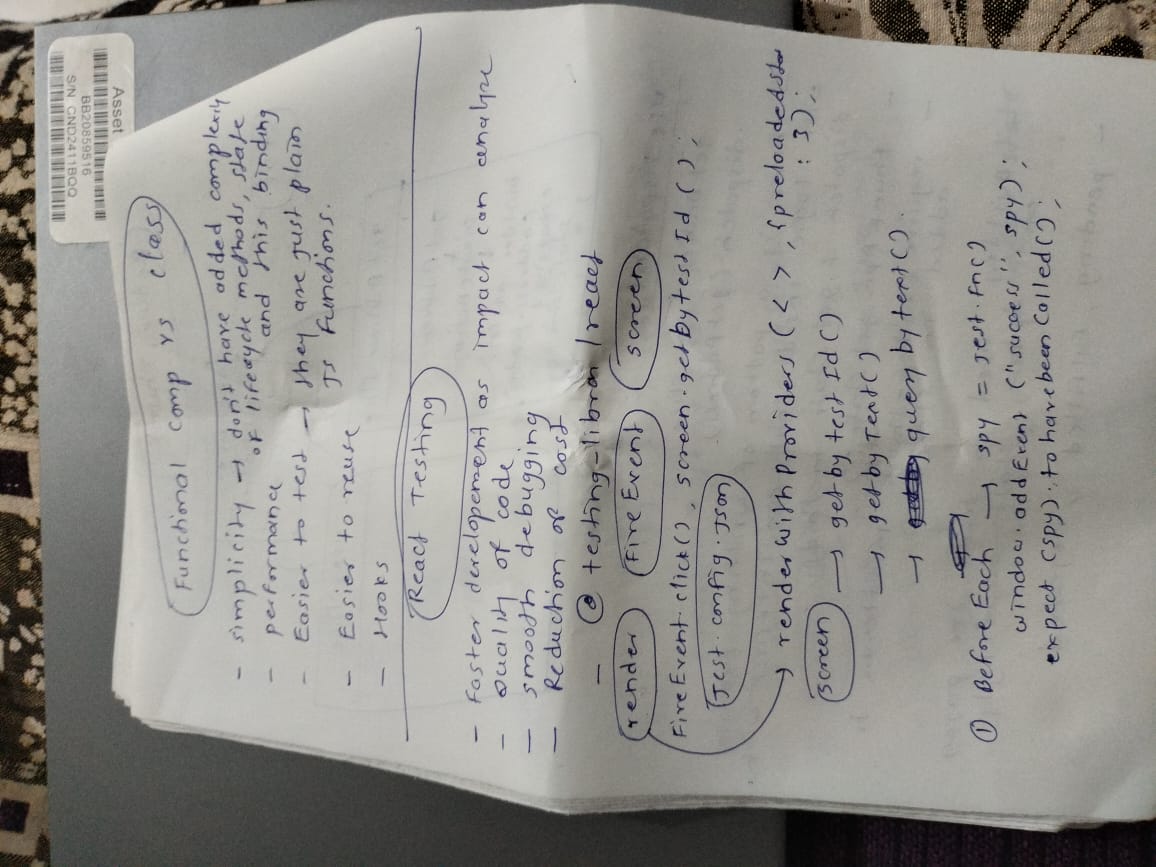 Asset
BB20859516
S/N CND2411BQQ
Functional comp vs class
- simplicity → don't have added complexity
of lifecycle methods, state
and this binding
- performance
- Easier to test → they are just plain
JS Functions.
- Easier to reuse
- Hooks
React Testing
- Faster developement as impact can analyze
- Quality of code
- smooth debugging
- Reduction of cost
- @ testing-library/react
render Fire Event screen
FireEvent.click(), screen.getbytestId();
Jest.config.json
→ renderWithProviders(< >, {preloadedSta
: 3});
screen → getbytestId()
→ getbyText()
→ querybytext().
① BeforeEach → spy = Jest.fn()
window.addEvent ("success", spy);
expect (spy).tohavebeenCalled();